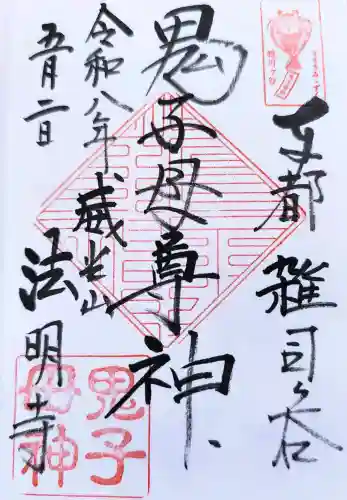 東都 雑司ヶ谷
鬼子母尊神
令和八年
五月二日
威光山
法明寺
鬼子
母神